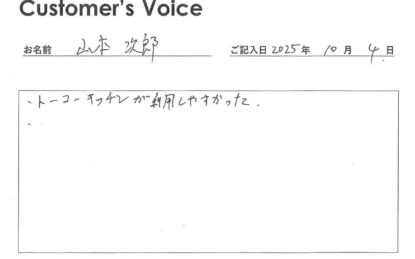 Customer's Voice
お名前 山本 次郎 ご記入日 2025年 10月 4日
・トーコーキッチンが利用しやすかった.
・